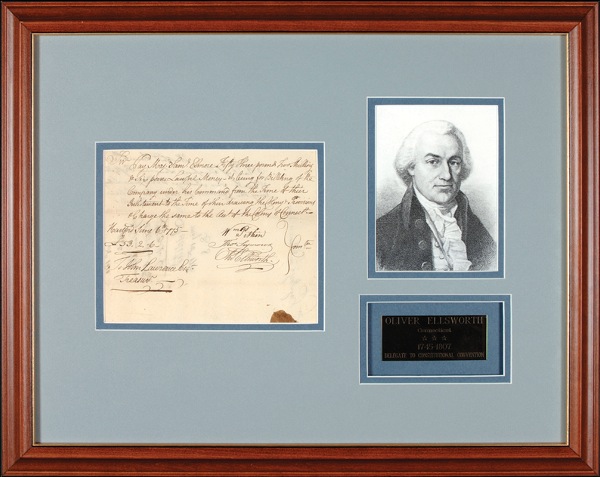 Sir
Pay Maj. Sam.l Elmore Fifty Three pounds Two Shilling
& Six pence Lawful Money – being for Billeting of the
Company under his Command from the time of their
Inlistment to the Time of their
& Charge the same to the Acct of the Colony of Connect.
Hartford June 6th 1775
£53.2.6
Wm Pitkin
Thos Seymour
Oli Ellsworth
Comtte
To John Lawrence Esq
Treasurer
OLIVER ELLSWORTH
Connecticut
1745-1807
DELEGATE TO CONSTITUTIONAL CONVENTION